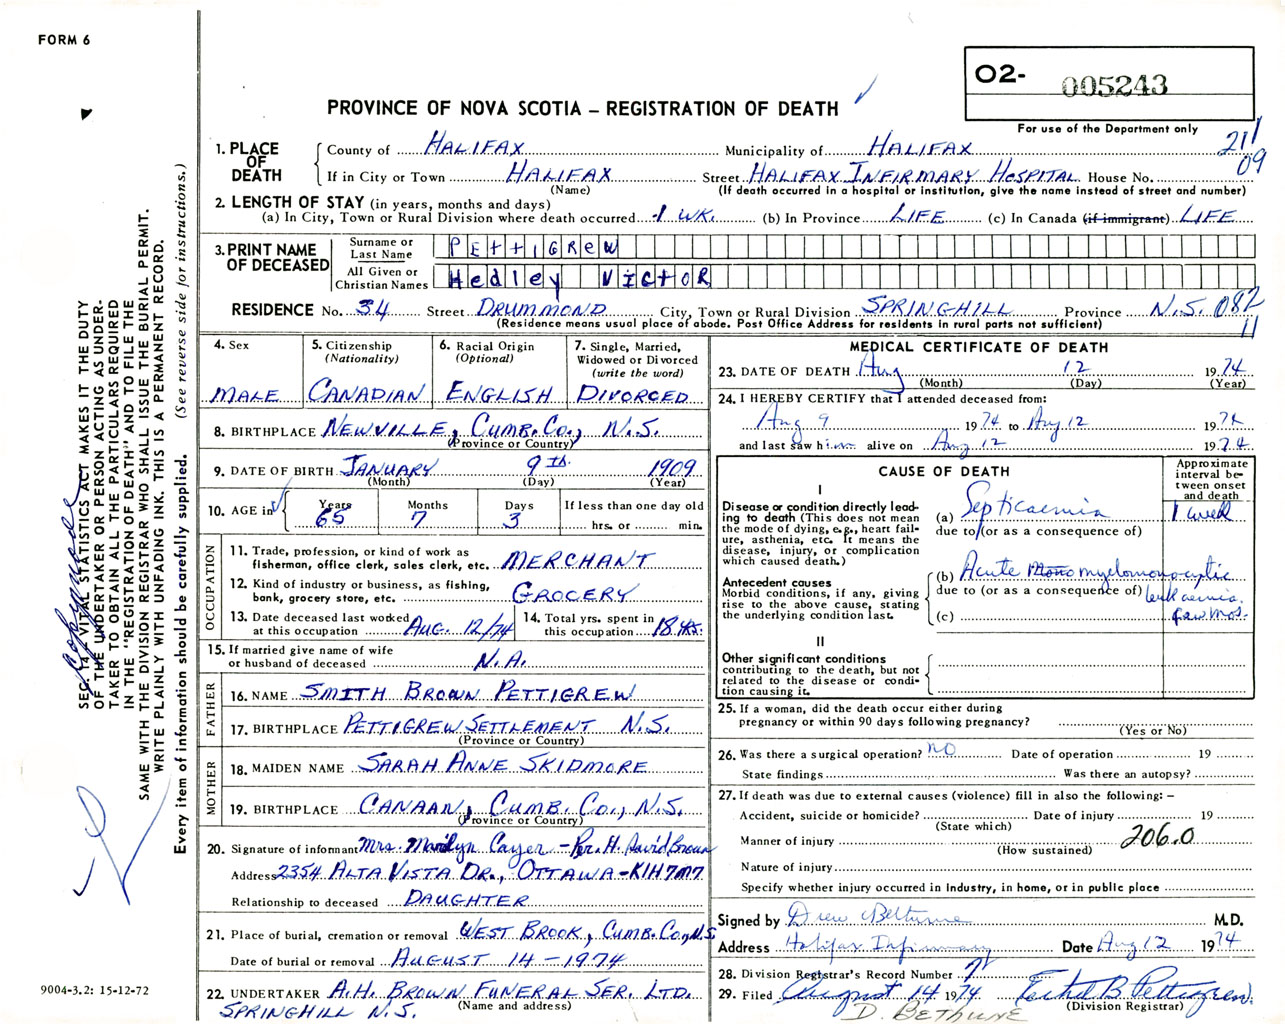 FORM 6
O2- 005243
For use of the Department only
PROVINCE OF NOVA SCOTIA – REGISTRATION OF DEATH
211
09
1. PLACE OF DEATH
County of HALIFAX Municipality of HALIFAX
If in City or Town HALIFAX Street HALIFAX INFIRMARY HOSPITAL House No.
(Name) (If death occurred in a hospital or institution, give the name instead of street and number)
2. LENGTH OF STAY (in years, months and days)
(a) In City, Town or Rural Division where death occurred 1 WK. (b) In Province LIFE (c) In Canada (if immigrant) LIFE
3. PRINT NAME OF DECEASED
Surname or Last Name PEttIGReW
All Given or Christian Names HedLey VICtOR
RESIDENCE No. 34 Street DRUMMOND City, Town or Rural Division SPRINGHILL Province N.S. 082
11
(Residence means usual place of abode. Post Office Address for residents in rural parts not sufficient)
4. Sex
MALE
5. Citizenship
(Nationality)
CANADIAN
6. Racial Origin
(Optional)
ENGLISH
7. Single, Married,
Widowed or Divorced
(write the word)
DIVORCED
8. BIRTHPLACE NEWVILLE, CUMB. CO., N.S.
(Province or Country)
9. DATE OF BIRTH JANUARY 9TH 1909
(Month) (Day) (Year)
10. AGE in
Years Months Days If less than one day old
65 7 3 hrs. or min.
OCCUPATION
11. Trade, profession, or kind of work as
fisherman, office clerk, sales clerk, etc. MERCHANT
12. Kind of industry or business, as fishing,
bank, grocery store, etc. GROCERY
13. Date deceased last worked
at this occupation AUG. 12/74
14. Total yrs. spent in
this occupation 18 YRS.
15. If married give name of wife
or husband of deceased N.A.
FATHER
16. NAME SMITH BROWN PETTIGREW
17. BIRTHPLACE PETTIGREW SETTLEMENT N.S.
(Province or Country)
MOTHER
18. MAIDEN NAME SARAH ANNE SKIDMORE
19. BIRTHPLACE CANAAN, CUMB. CO., N.S.
(Province or Country)
20. Signature of informant Mrs. Marilyn Cayer - Per. H. David Brown
Address 2354 ALTA VISTA DR., OTTAWA-K1H7M7
Relationship to deceased DAUGHTER
21. Place of burial, cremation or removal WEST BROOK, CUMB. CO., N.S.
Date of burial or removal AUGUST 14-1974
22. UNDERTAKER A.H. BROWN FUNERAL SER. LTD.
SPRINGHILL N.S. (Name and address)
MEDICAL CERTIFICATE OF DEATH
23. DATE OF DEATH Aug 12 1974
(Month) (Day) (Year)
24. I HEREBY CERTIFY that I attended deceased from:
Aug 9 1974 to Aug 12 1974
and last saw him alive on Aug 12 1974
CAUSE OF DEATH
Approximate interval between onset and death
I
Disease or condition directly leading to death (This does not mean the mode of dying, e.g., heart failure, asthenia, etc. It means the disease, injury, or complication which caused death.)
(a) Septicaemia 1 week
due to (or as a consequence of)
Antecedent causes
Morbid conditions, if any, giving rise to the above cause, stating the underlying condition last.
(b) Acute Mono myelomonocytic
due to (or as a consequence of) leukaemia
(c) few mos.
II
Other significant conditions
contributing to the death, but not related to the disease or condition causing it.
25. If a woman, did the death occur either during
pregnancy or within 90 days following pregnancy?
(Yes or No)
26. Was there a surgical operation? no Date of operation 19
State findings Was there an autopsy?
27. If death was due to external causes (violence) fill in also the following: –
Accident, suicide or homicide? Date of injury 19
(State which)
Manner of injury 206.0
(How sustained)
Nature of injury
Specify whether injury occurred in Industry, in home, or in public place
Signed by Drew Bethune M.D.
Address Halifax Infirmary Date Aug 12 1974
28. Division Registrar's Record Number
29. Filed August 14 1974
D. BETHUNE (Division Registrar)
SEC. 14 - VITAL STATISTICS ACT MAKES IT THE DUTY
OF THE UNDERTAKER OR PERSON ACTING AS UNDER-
TAKER TO OBTAIN ALL THE PARTICULARS REQUIRED
IN THE "REGISTRATION OF DEATH" AND TO FILE THE
SAME WITH THE DIVISION REGISTRAR WHO SHALL ISSUE THE BURIAL PERMIT.
WRITE PLAINLY WITH UNFADING INK. THIS IS A PERMANENT RECORD.
Every item of information should be carefully supplied. (See reverse side for instructions.)
9004-3.2: 15-12-72